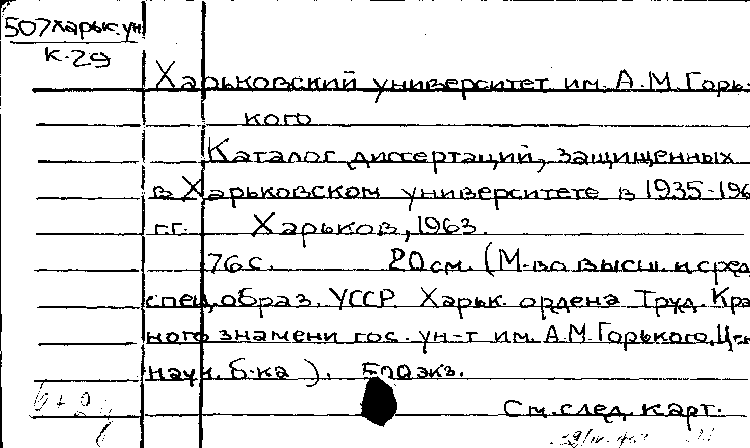 507 Харьк. ун
К-29
Харьковский университет им. А.М. Горь-
кого
Каталог диссертаций, защищенных
в Харьковском университете в 1935-196
гг. Харьков, 1963.
76 с. 20 см. (М-во высш. и сред
спец. образ. УССР. Харьк. ордена Труд. Кра
ного знамени гос. ун-т им. А.М. Горького. Ц-
науч. б-ка). 500 экз.
См. след. карт.